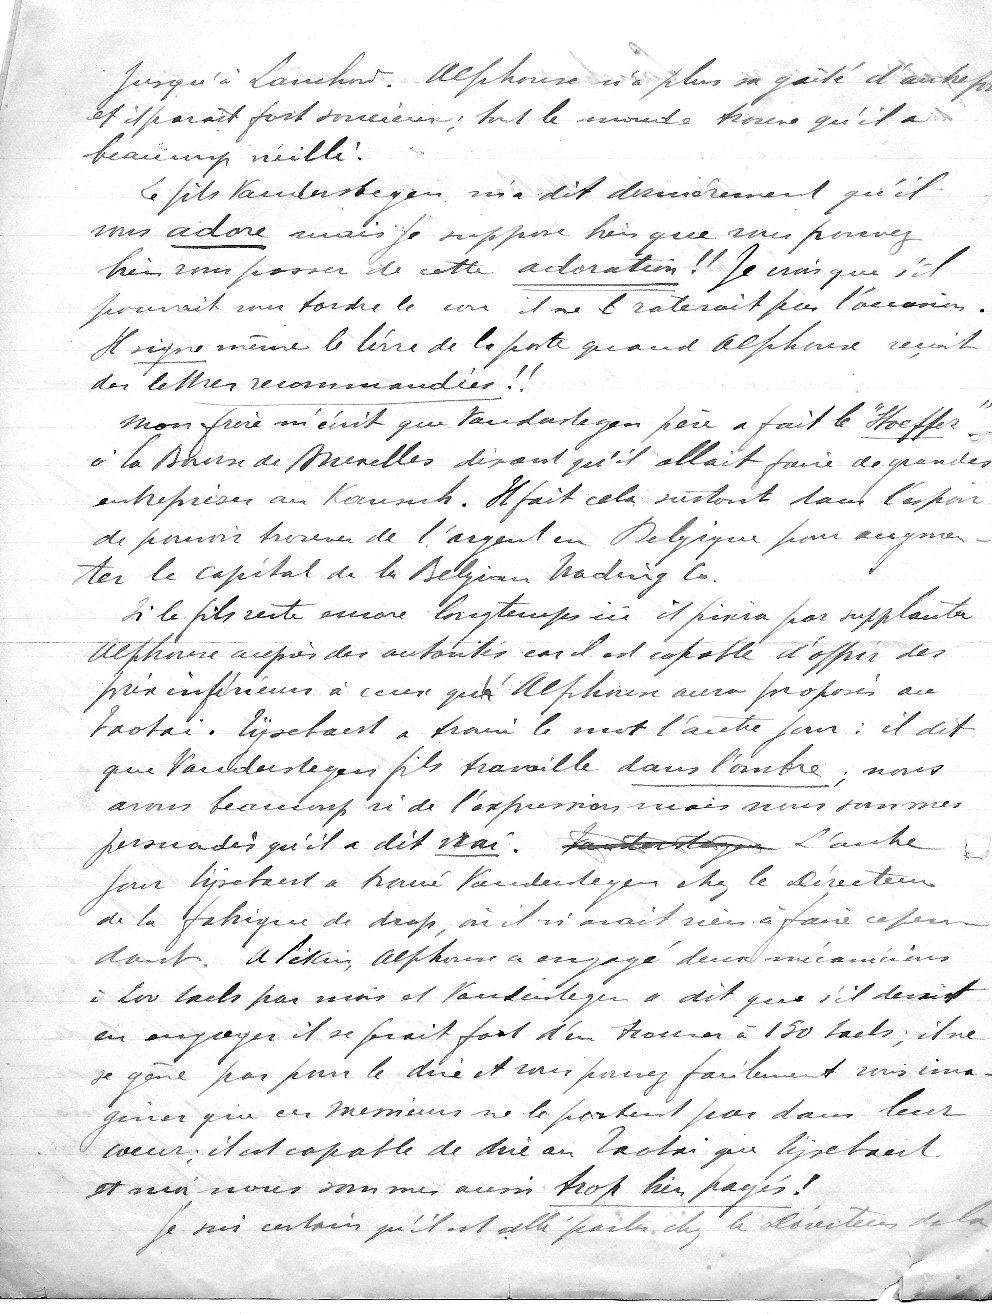 jusqu'à Lanchow. Alphonse n'a plus sa gaîté d'autrefo
et il paraît fort soucieux; tout le monde trouve qu'il a
beaucoup vieilli.
Le fils Vanderstegen m'a dit dernièrement qu'il
vous adore mais je suppose bien que vous pouvez
bien vous passer de cette adoration!! Je crois que s'il
pouvait vous tordre le cou il ne raterait pas l'occasion.
Il signe même le livre de la poste quand Alphonse reçoit
des lettres recommandées!!
Mon frère m'écrit que Vanderstegen père a fait le "Stoeffer"
à la Bourse de Bruxelles disant qu'il allait faire de grandes
entreprises au Kansuh. Il fait cela surtout dans l'espoir
de pouvoir trouver de l'argent en Belgique pour augmen-
ter le capital de la Belgian Trading Co.
Si le fils reste encore longtemps ici il finira par supplanter
Alphonse auprès des autorités car il est capable d'offrir des
prix inférieurs à ceux qu' Alphonse aura proposés au
Taotai. Lijsebaert a trouvé le mot l'autre jour: il dit
que Vanderstegen fils travaille dans l'ombre; nous
avons beaucoup ri de l'expression mais nous sommes
persuadés qu'il a dit vrai. Vanderstegen L'autre
jour Lijsebaert a trouvé Vanderstegen chez le Directeur
de la fabrique de drap, où il n'avait rien à faire cepen
dant. A Pékin, Alphonse a engagé deux mécaniciens
à 200 taels par mois et Vanderstegen a dit que s'il devait
en engager il se ferait fort d'en trouver à 150 taels; il ne
se gêne pas pour le dire et vous pouvez facilement vous ima-
giner que ces messieurs ne le portent pas dans leur
coeur; il est capable de dire au Taotai que Lijsebaert
et moi nous sommes aussi trop bien payés!
Je suis certain qu'il est allé parler chez le Directeur de la